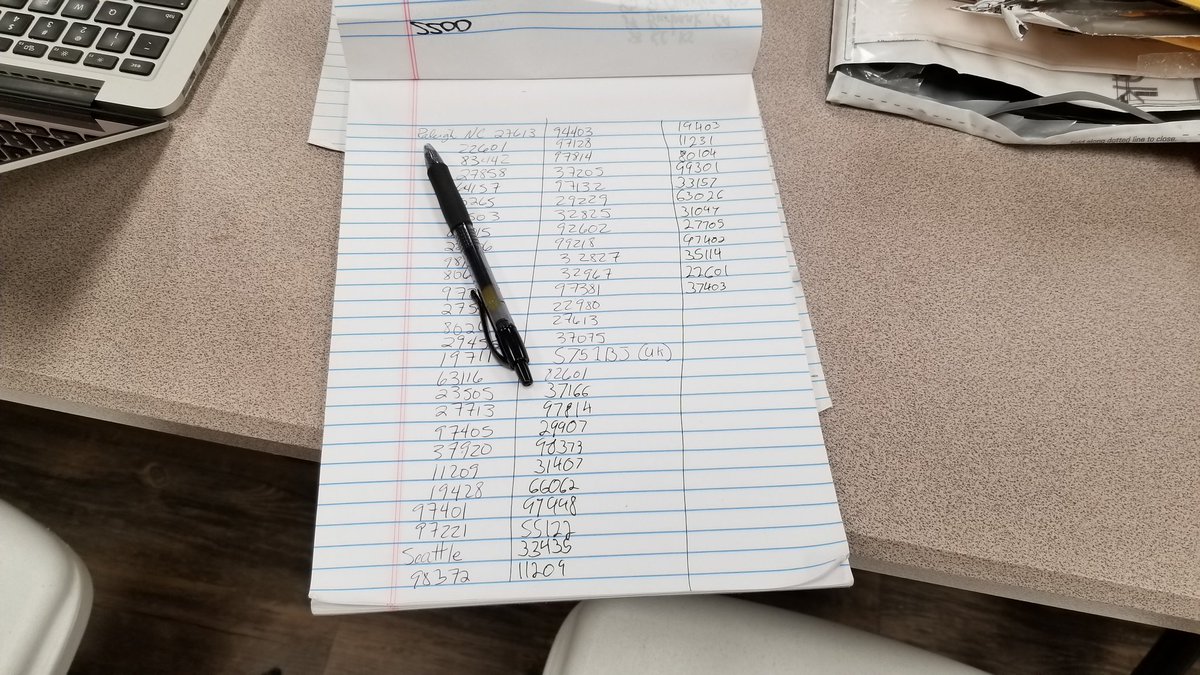 2200
Raleigh NC 27613
22601
83442
27858
64157
19711
63116
23505
27713
97405
37920
11209
19428
97401
97221
Seattle
98372
94403
97128
97814
37205
97132
29229
32825
92602
99218
32827
32967
97381
22980
27613
37075
S751BJ (UK)
22601
37166
97814
29907
98373
31407
66062
97448
55122
33435
11209
19403
11231
80104
99301
33157
63026
31047
27705
97402
35114
22601
37403
along dotted line to close.